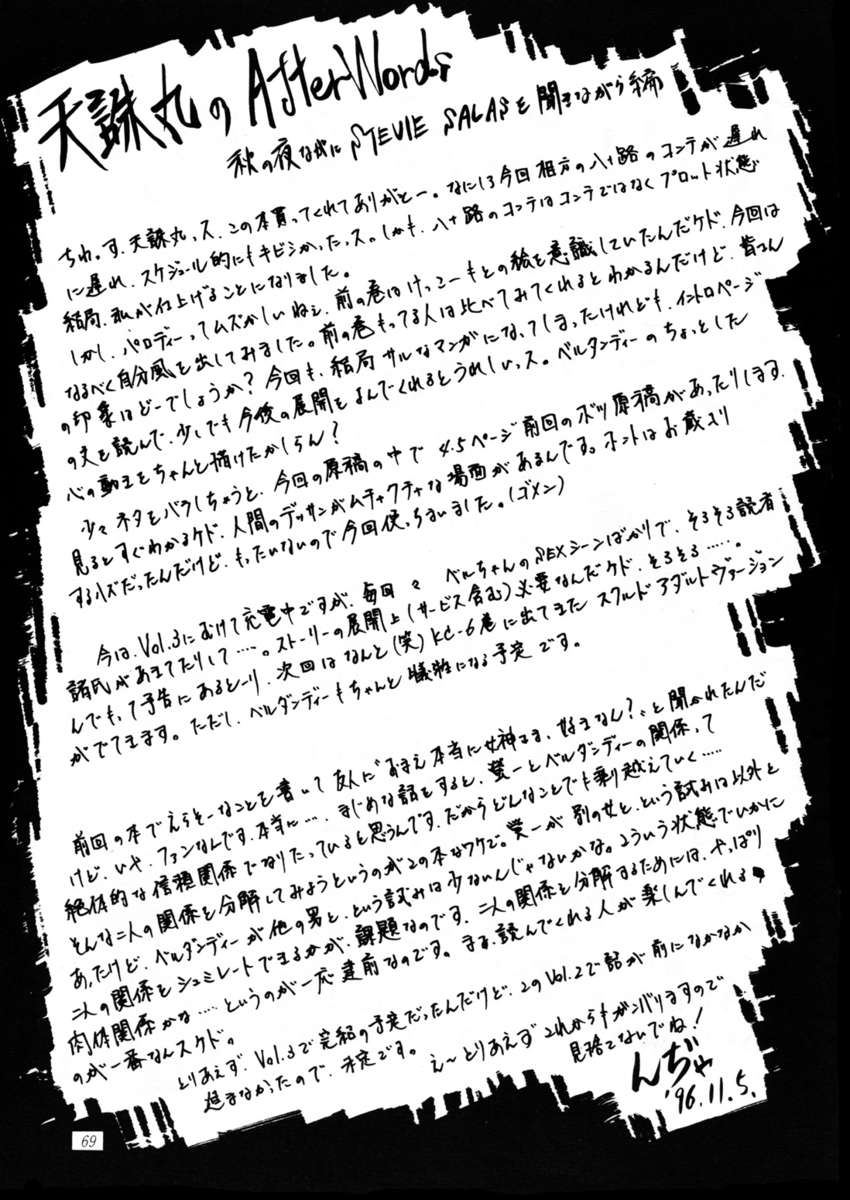 天誅丸の AfterWords
秋の夜ながに STEVIE SALASを聞きながら締
ちわっす、天誅丸っス、この本買ってくれてありがとー。なにしろ今回相方の八十路のコンテが遅れ
に遅れ、スケジュール的にもキビシかったっス。しかも、八十路のコンテはコンテではなくプロット状態
結局、私が仕上げることになりました。
しかし、パロディーってムズかしいねェ、前の巻はけっこーもとの絵を意識していたんだケド、今回は
なるべく自分風を出してみました。前の巻もってる人は比べてみてくれるとわかるんだけど、皆さん
の印象はどーでしょうか?今回も、結局サルなマンガになってしまったけれども、イントロページ
の文を読んで、少しでも今後の展開をよんでくれるとうれしいっス。ベルダンディーのちょっとした
心の動きをちゃんと描けたかしらん?
少々ネタをバラしちゃうと、今回の原稿の中で 4.5ページ前回のボツ原稿があったりします、
見るとすぐわかるケド、人間のデッサンがムチャクチャな場面があるんです。ホントはお蔵入り
するハズだったんだけど、もったいないので今回使っちまいました。(ゴメン)
今は、Vol.3にむけて充電中ですが、毎回々 ベルちゃんのSEXシーンばかりで、そろそろ読者
諸氏があきてたりして‥‥。ストーリーの展開上(サービス含む)必要なんだケド、そろそろ‥‥‥。
んでもって予告にあるとーり、次回はなんと(笑)KC-6巻に出てきた スクルド アダルトヴァージョン
がでてきます。ただし、ベルダンディーもちゃんと犠牲になる予定です。
前回の本でえらそーなことを書いて友人に〝おまえ本当に女神さま、好きなん?〟と聞かれたんだ
けど、いや、ファンなんです、本当に‥‥、まじめな話をすると、螢一とベルダンディーの関係って
絶体的な信頼関係でなりたっていると思うんです、だからどんなことでも乗り越えていく‥‥‥
そんな二人の関係を分解してみようというのがこの本なワケで。螢一が 別の女と、という試みは以外と
あったけど、ベルダンディーが他の男と、という試みは少ないんじゃないかな。こういう状態でいかに
二人の関係をシュミレートできるかが、課題なのです、二人の関係を分解するためには、やっぱり
肉体関係かな‥‥‥というのが一応建前なのです。まあ、読んでくれる人が楽しんでくれる
のが一番なんスケド。
とりあえず、Vol.3で完結の予定だったんだけど、このVol.2で話が前になかなか
進まなかったので、未定です。
え～とりあえず これからもガンバりますので
見捨てないでね!
んぢゃ
'96.11.5.
69